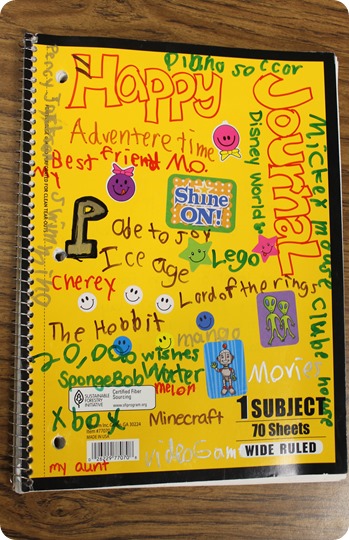 piano soccor
Happy
Journal
Adventere time
Disney World
Mickex mouse clube house
Best friend Mo.
My
Shine
ON!
P
ode to joy
Ice age
Lego
Cherey
Lord of the rings
The Hobbit
mango
20,000 wishes
SpongeBob
Water
melon
Movies
SUSTAINABLE
FORESTRY
INITIATIVE
Certified Fiber
Sourcing
www.sfiprogram.org
Xbox
Minecraft
1 SUBJECT
70 Sheets
WIDE RULED
MADE IN USA
my aunt
videoGam